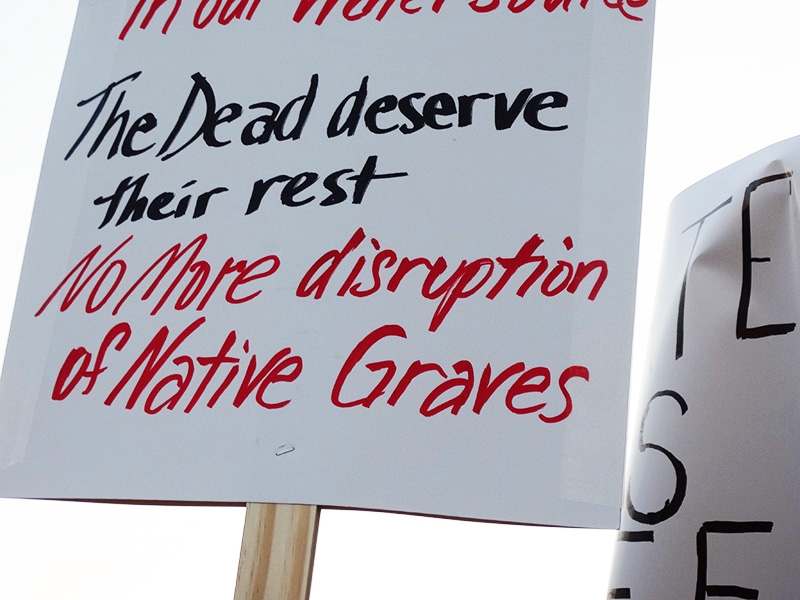 in our water source
The Dead deserve
their rest
No More disruption
of Native Graves
TE
S
E